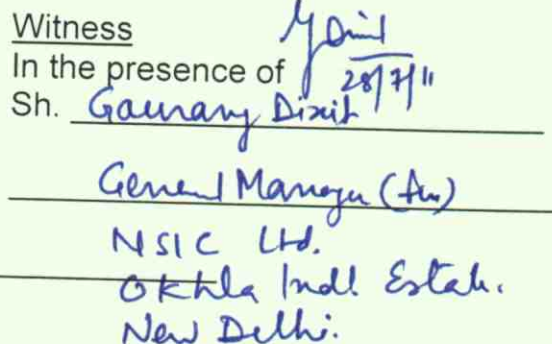 Witness
In the presence of
28/7/11
Sh. Gaurang Dixit
General Manager
NSIC Ltd.
Okhla Indl. Estate.
New Delhi.